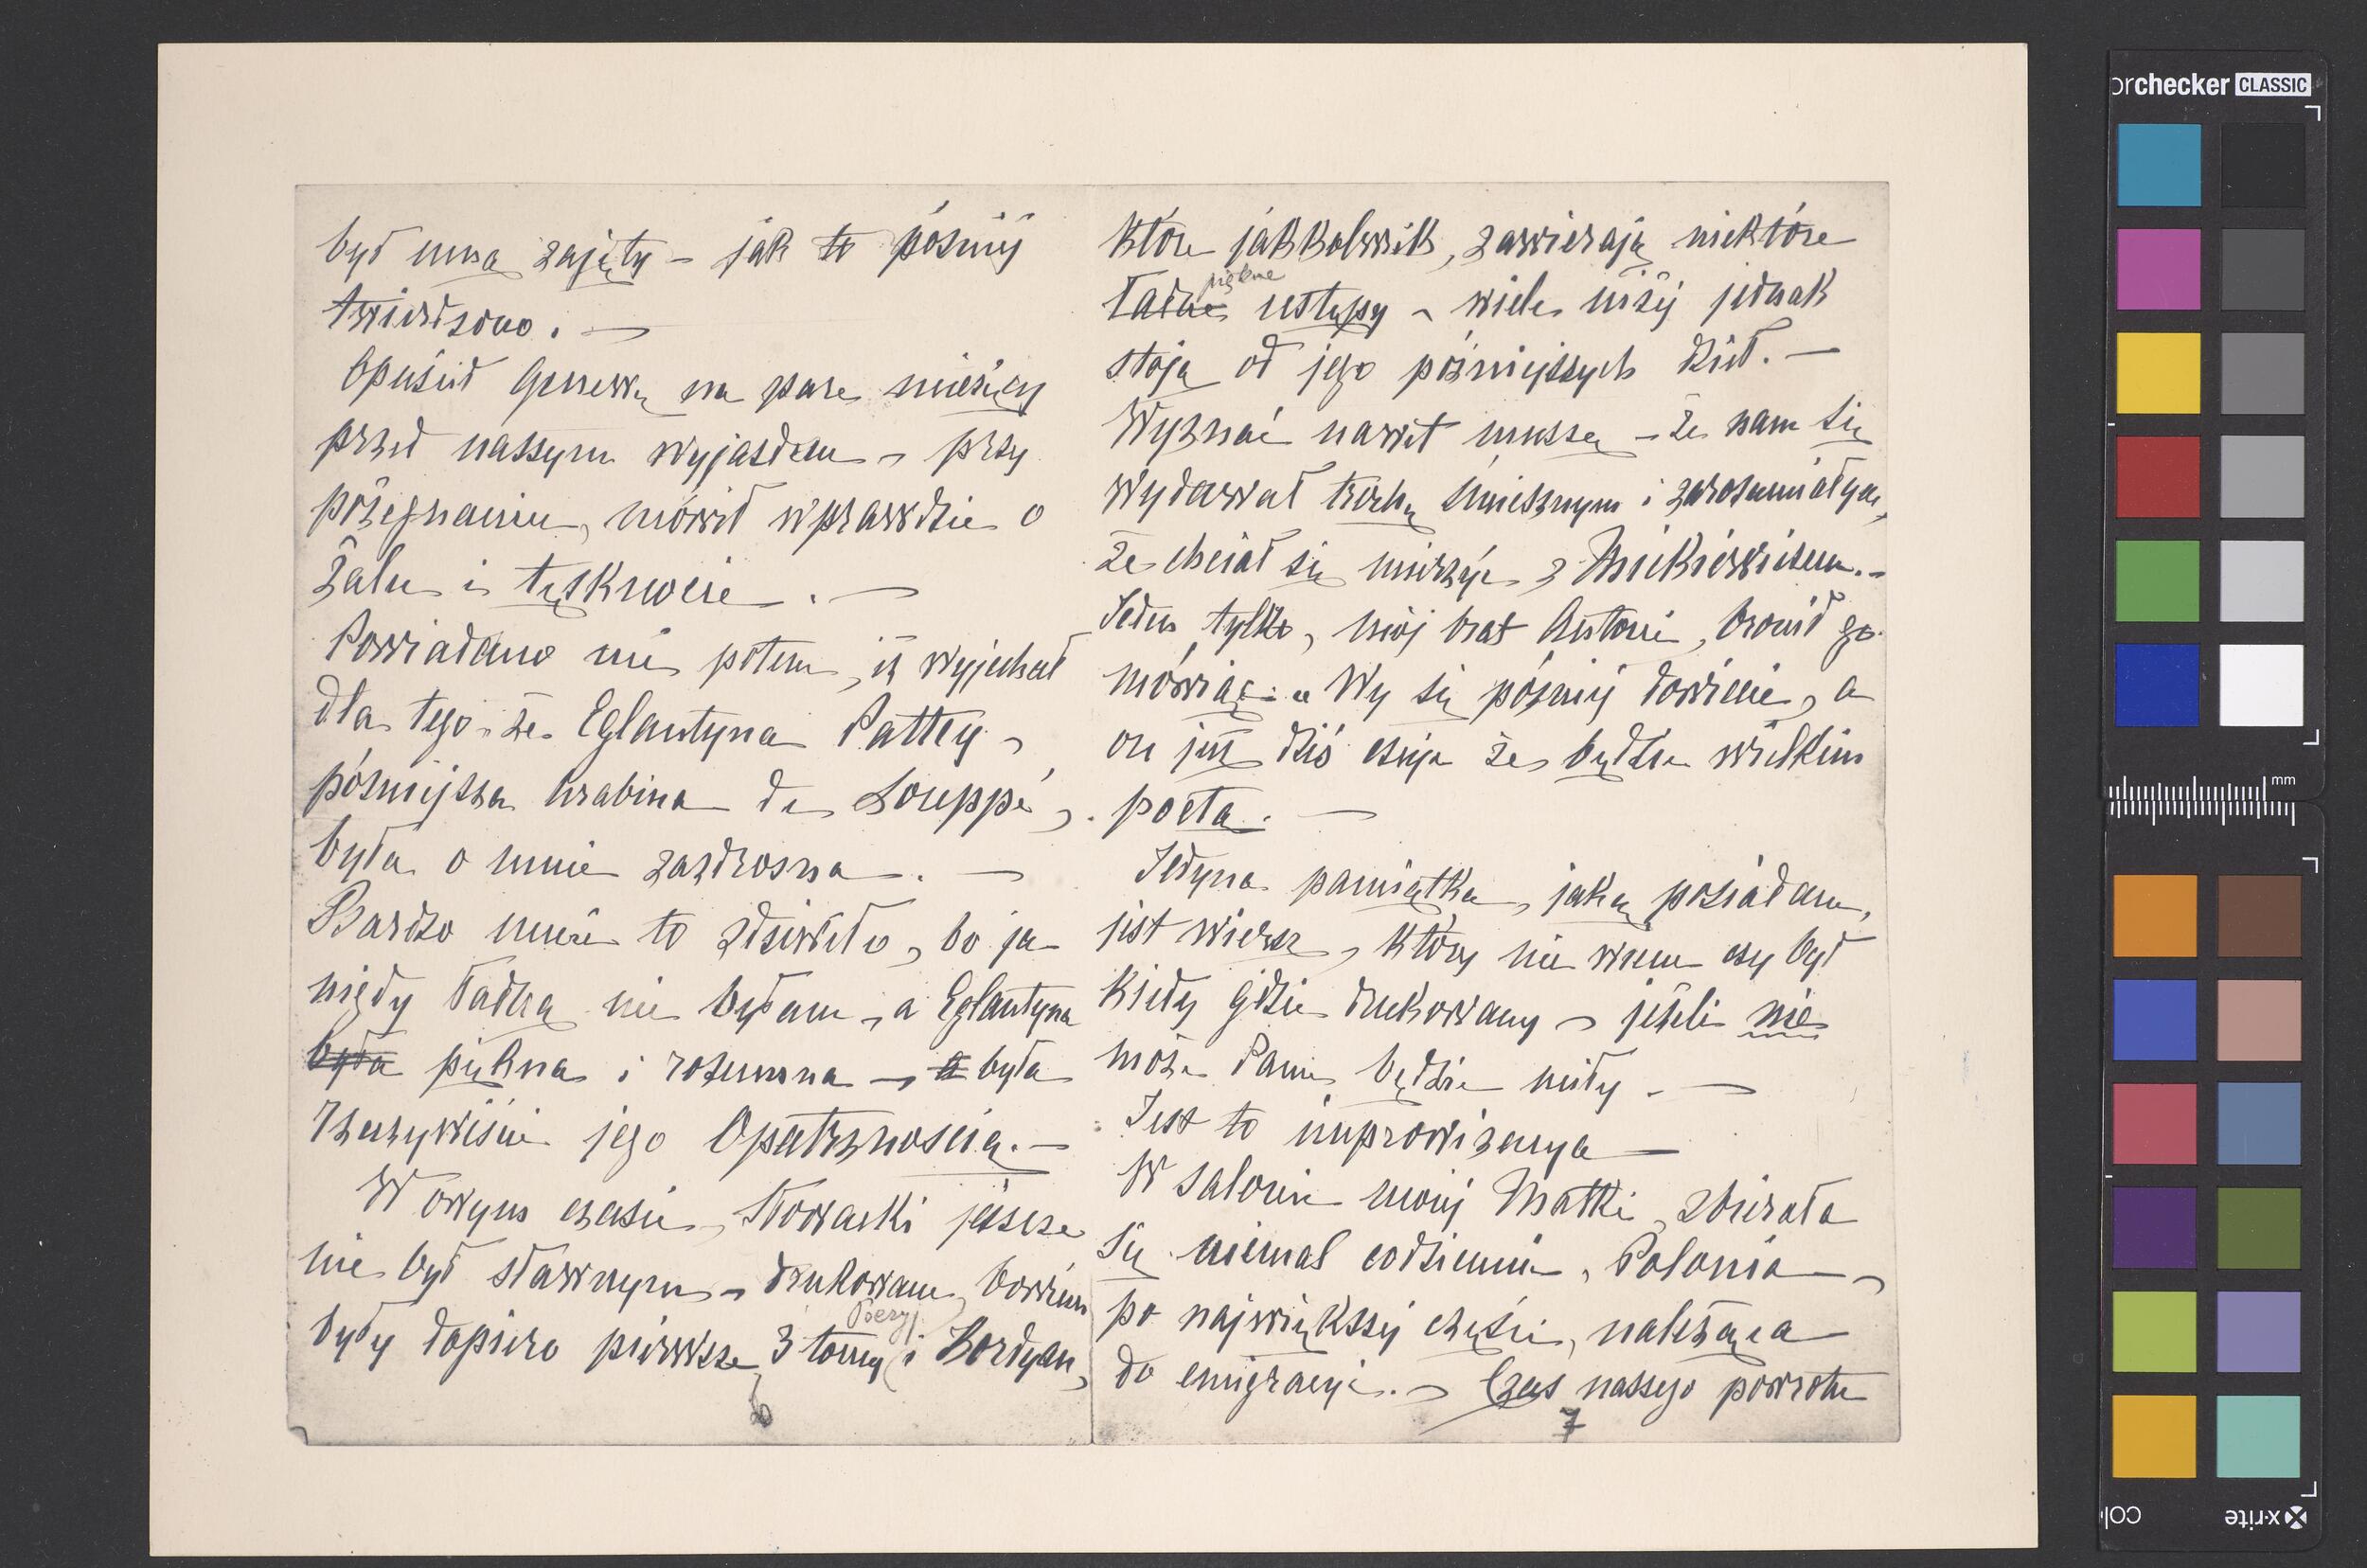 był mną zajęty – jak to póśniéj
twierdzono. —
Opuścił Genewę na parę miesięcy
przed naszym wyjazdem – przy
pożegnaniu, mówił wprawdzie o
żalu i tęsknocie. —
Powiadano mi potem, iż wyjechał
dla tego – że Eglantyna Pattey –
póśniejsza hrabina de Louppé,
była o mnie zazdrosna. —
Bardzo mnie to zdziwiło, bo ja
nigdy ładną nie byłam, a Eglantyna
była piękna i rozumna – a była
rzeczywiście jego Opatrznością. —
W owym czasie, Słowacki jeszcze
nie był sławnym – drukowane bowiem
Poezyj
były dopiero pierwsze, 3 tomy i Kordyan,
6
które jakkolwiek, zawierają niektóre
piękne
ładne ustępy – wiele niżéj jednak
stoją od jego póżniejszych dzieł. —
Wyznać nawet muszę – że nam się
wydawał trochę śmiesznym i zarozumiałym,
że chciał się mierzyć z Mickiewiczem. –
Jeden tylko, mój brat Antoni, bronił go
mówiąc: „Wy się póśniéj dowiecie, a
on już dziś czuje że będzie wielkim
poetą. —
Jedyna pamiątka, jaką posiadam,
jest wiersz, który nie wiem czy był
kiedy gdzie drukowany – jeżeli nie
może Panu będzie miły. —
Jest to improwizacya —
W salonie mojéj Matki, zbierała
się niemal codziennie, Polonia –
po największéj części, należąca
do emigracyi. – Czas naszego powrotu
7
orchecker CLASSIC
mm
x-rite
colo